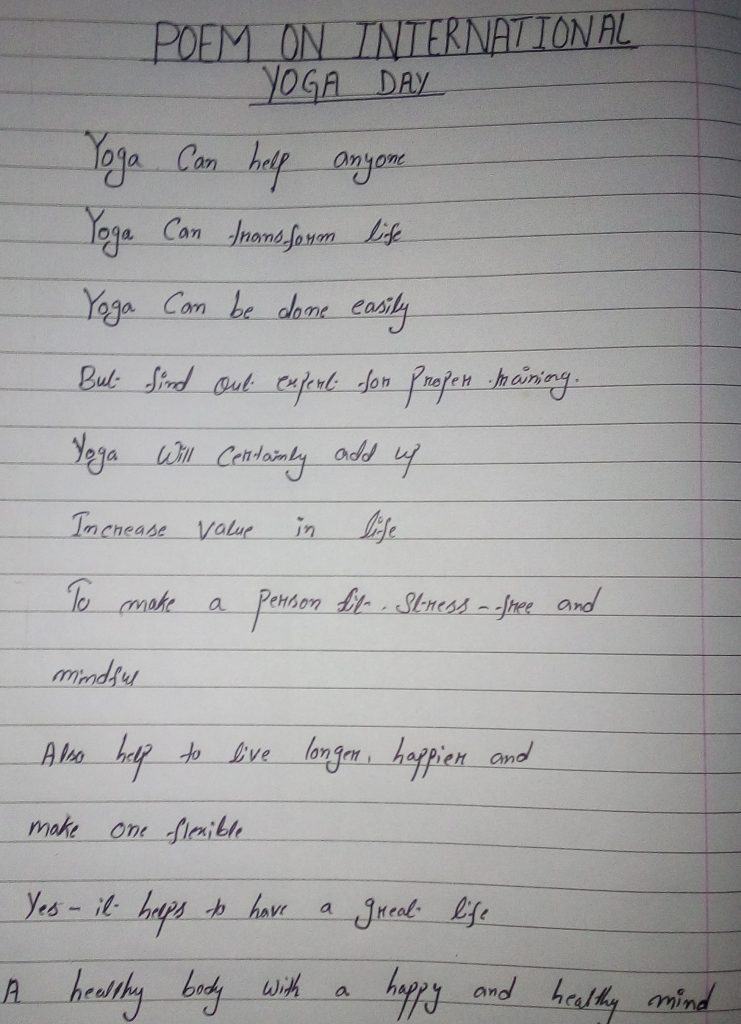 POEM ON INTERNATIONAL
YOGA DAY
Yoga Can help anyone
Yoga Can transform life
Yoga Can be done easily
But find out expert for Proper training.
Yoga Will Certainly add up
Increase value in life
To make a person fit, Stress-free and
mindful
Also help to live longer, happier and
make one flexible
Yes - it helps to have a great life
A healthy body with a happy and healthy mind